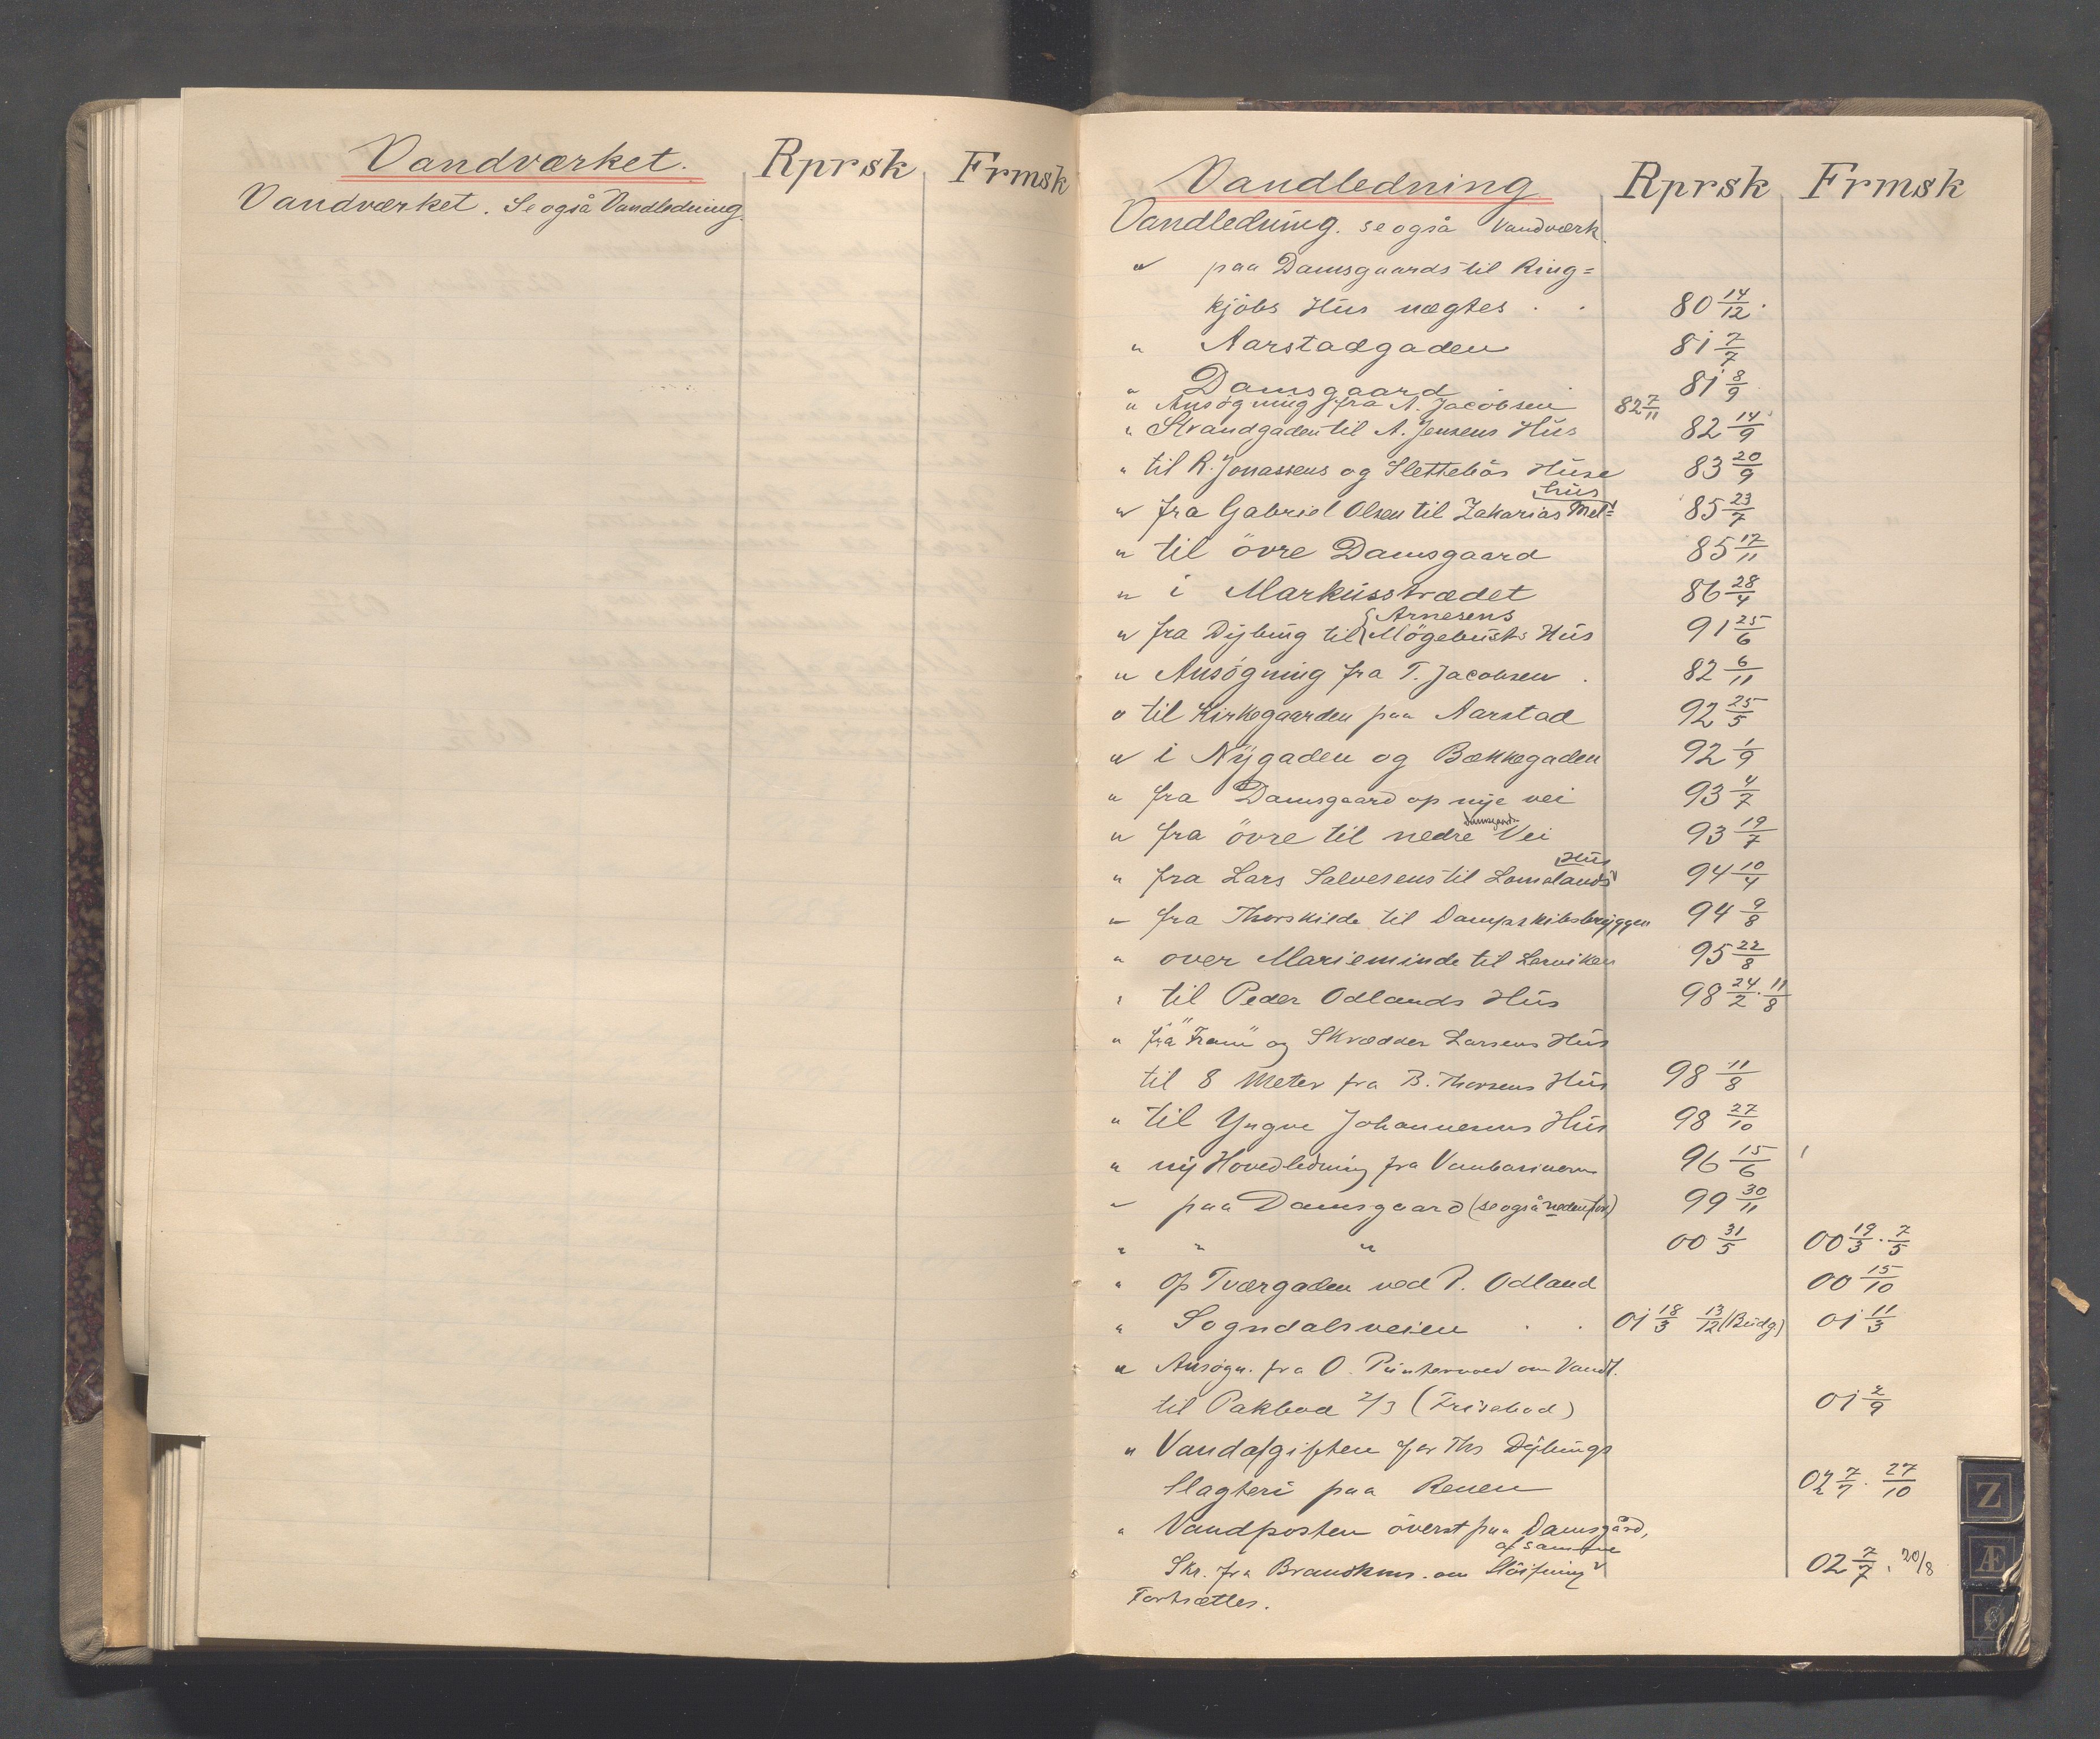 Vandværket. Rprsk Frmsk
Vandværket. Se også Vandledning.
Vandledning Rprsk Frmsk
Vandledning. se også Vandværk.
" paa Damsgaards til Ring=
kjöbs Hus nægtes . . 80 14/12.
" Aarstadgaden 81 7/7
" Damsgaard . . 81 8/9
" Ansøgning fra A. Jacobsen 82 7/11
" Strandgaden til A. Jensens Hus 82 14/9
" til R. Jonassens og Slettebös Huse 83 20/9
" fra Gabriel Olsen til Zakarias Mel= hus 85 23/7
" til övre Damsgaard 85 17/11
" i Markusstrædet 86 28/4
" fra Dybing til { Arnesens Mögebusts Hus 91 25/6
" Ansøgning fra T. Jacobsen . 82 6/11
" til Kirkegaarden paa Aarstad 92 25/5
" i Nygaden og Bækkegaden 92 1/9
" fra Damsgaard op nye vei 93 4/7
" fra övre til nedre Damsgard Vei 93 19/7
" fra Lars Salvesens til Lomelands Hus 94 10/4
" fra Thorskilds til Dampskibsbryggen 94 9/8
" over Marieminde til Lervikens 95 22/8
" til Peder Odlands Hus 98 24/2 . 11/8
" fra "Fram" og Skrædder Larsens Hus
til 8 Meter fra B. Thorsens Hus 98 11/8
" til Yngve Johannesens Hus 98 27/10
" ny Hovedledning fra 96 15/6
" paa Damsgaard (se også nedenfor) 99 30/11
" " " 00 31/5 00 19/3 . 7/5
" op Tværgaden ved P. Odland 00 15/10
" Sogndalsveien . . 01 18/3 13/12 (Budg.) 01 11/3
" Ansøgn. fra O. Puntervold om Vandl.
til Pakbod 2/3 (Frisebod) 01 2/9
" Vandafgiften for Ths Dybings
Slagteri paa Renen 02 7/7 . 27/10
" Vandposten överst paa Damsgård,
Skr. fra Brandkms. om Slöifning af samme 02 7/7 . 20/8
Fortsættes.
Z
Æ
Ø